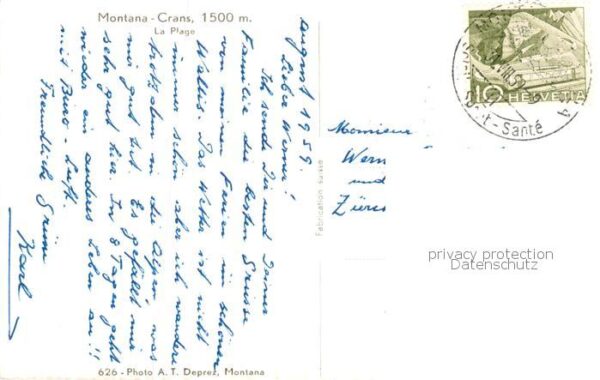 Montana - Crans, 1500 m.
La Plage
August 1959.
Lieber Werner!
Ich sende Dir und Deiner
Familie die besten Grüsse
von meinen Ferien im schönen
Wallis. Das Wetter ist nicht
immer schön aber ich wandere
trotzdem in die Alpen, was
mir gut tut. Es gefällt mir
sehr gut hier. In 8 Tagen geht
wieder ein anderes Leben an!!
mit Büro-Luft.
Freundliche Grüsse
Karl
626 - Photo A. T. Deprez, Montana
Fabrication Suisse
HELVETIA
10
Monsieur
Wern
und
Züric
-Santé
privacy protection
Datenschutz